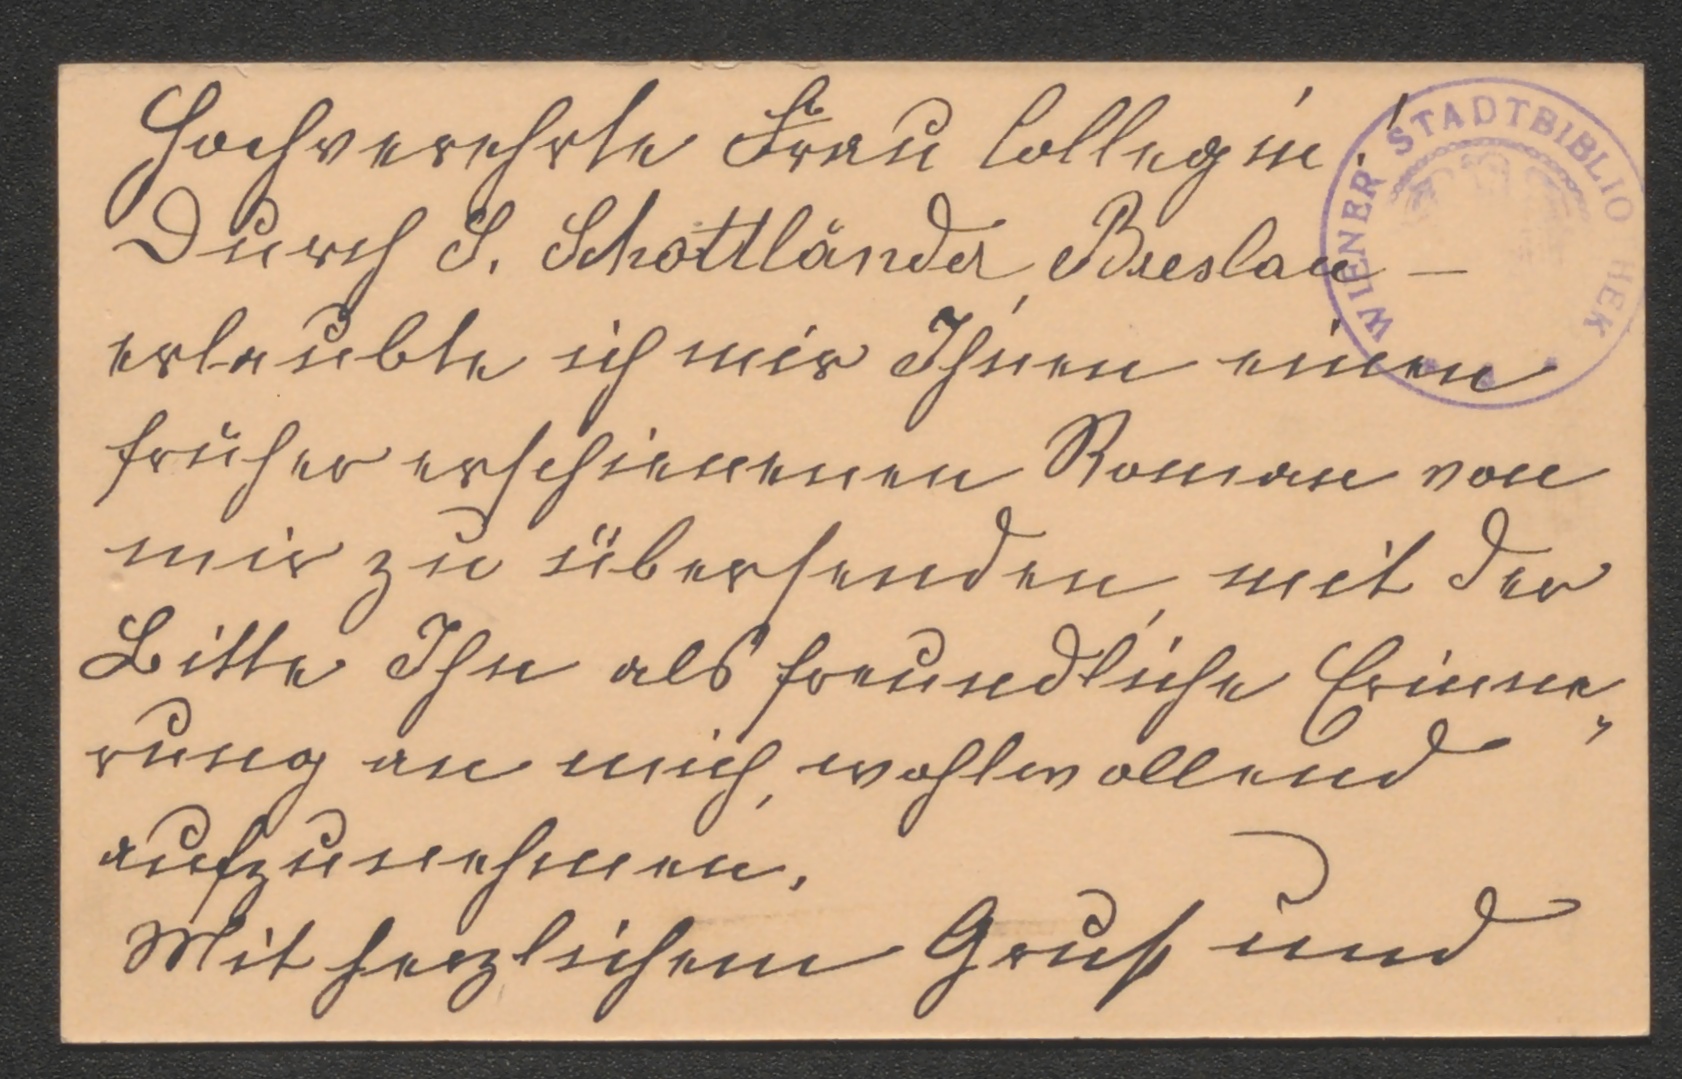 Hochverehrte Frau Collegin!
Durch S. Schottländer, Breslau –
erlaubte ich mir Ihnen einen
früher erschienenen Roman von
mir zu übersenden, mit der
Bitte Ihn als freundliche Erinne„
rung an mich, wohlwollend
aufzunehmen.
Mit herzlichem Gruß und
WIENER STADTBIBLIOTHEK